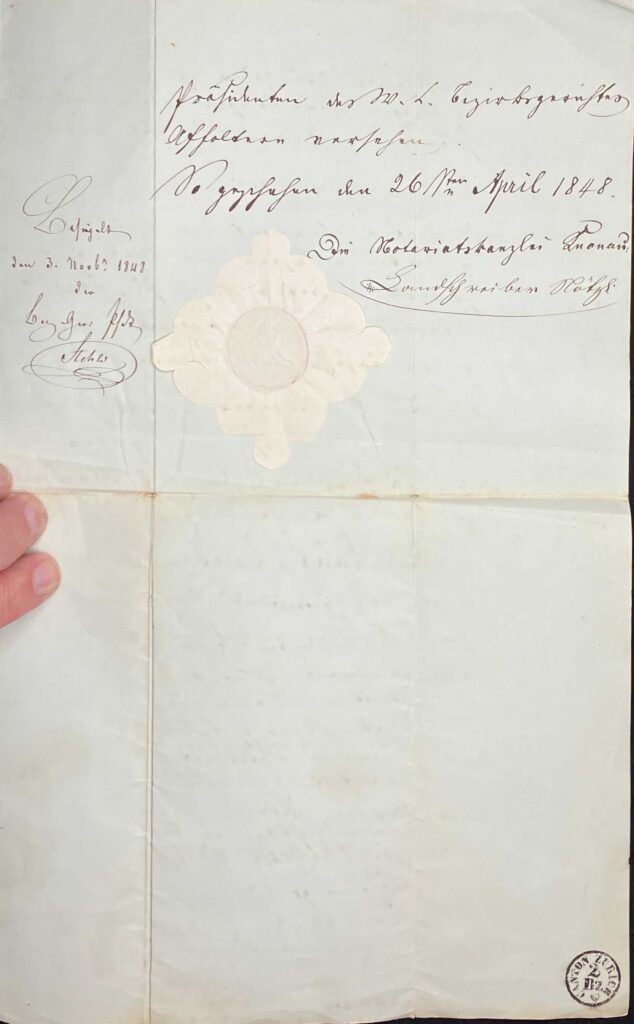 Präsidenten des W. L. Bezirksgerichtes
Affoltern versehen.
So geschehen den 26sten April 1848.
Die Notariatskanzlei Knonau:
Landschreiber
Besiegelt
den 3. Novbr 1848
der
Bez. Ger. Psdt
CANTON ZÜRICH
2
Bz.